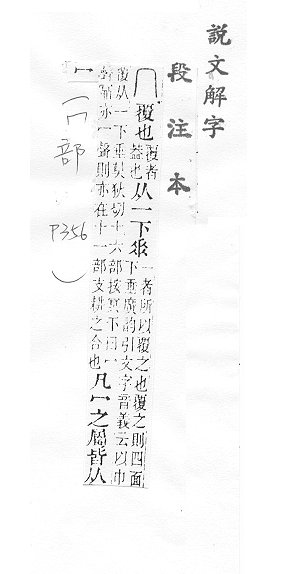 說文解字
段注本
冖覆也覆者蓋也从一下𠂹一者所以覆之也覆之則四面下垂廣韵引文字音義云以巾
覆从一下垂莫狄切十六部按冥下曰冖聲鼏亦冖聲則亦在十一部支耕之合也凡冖之屬皆从
冖
(冖部 P356)